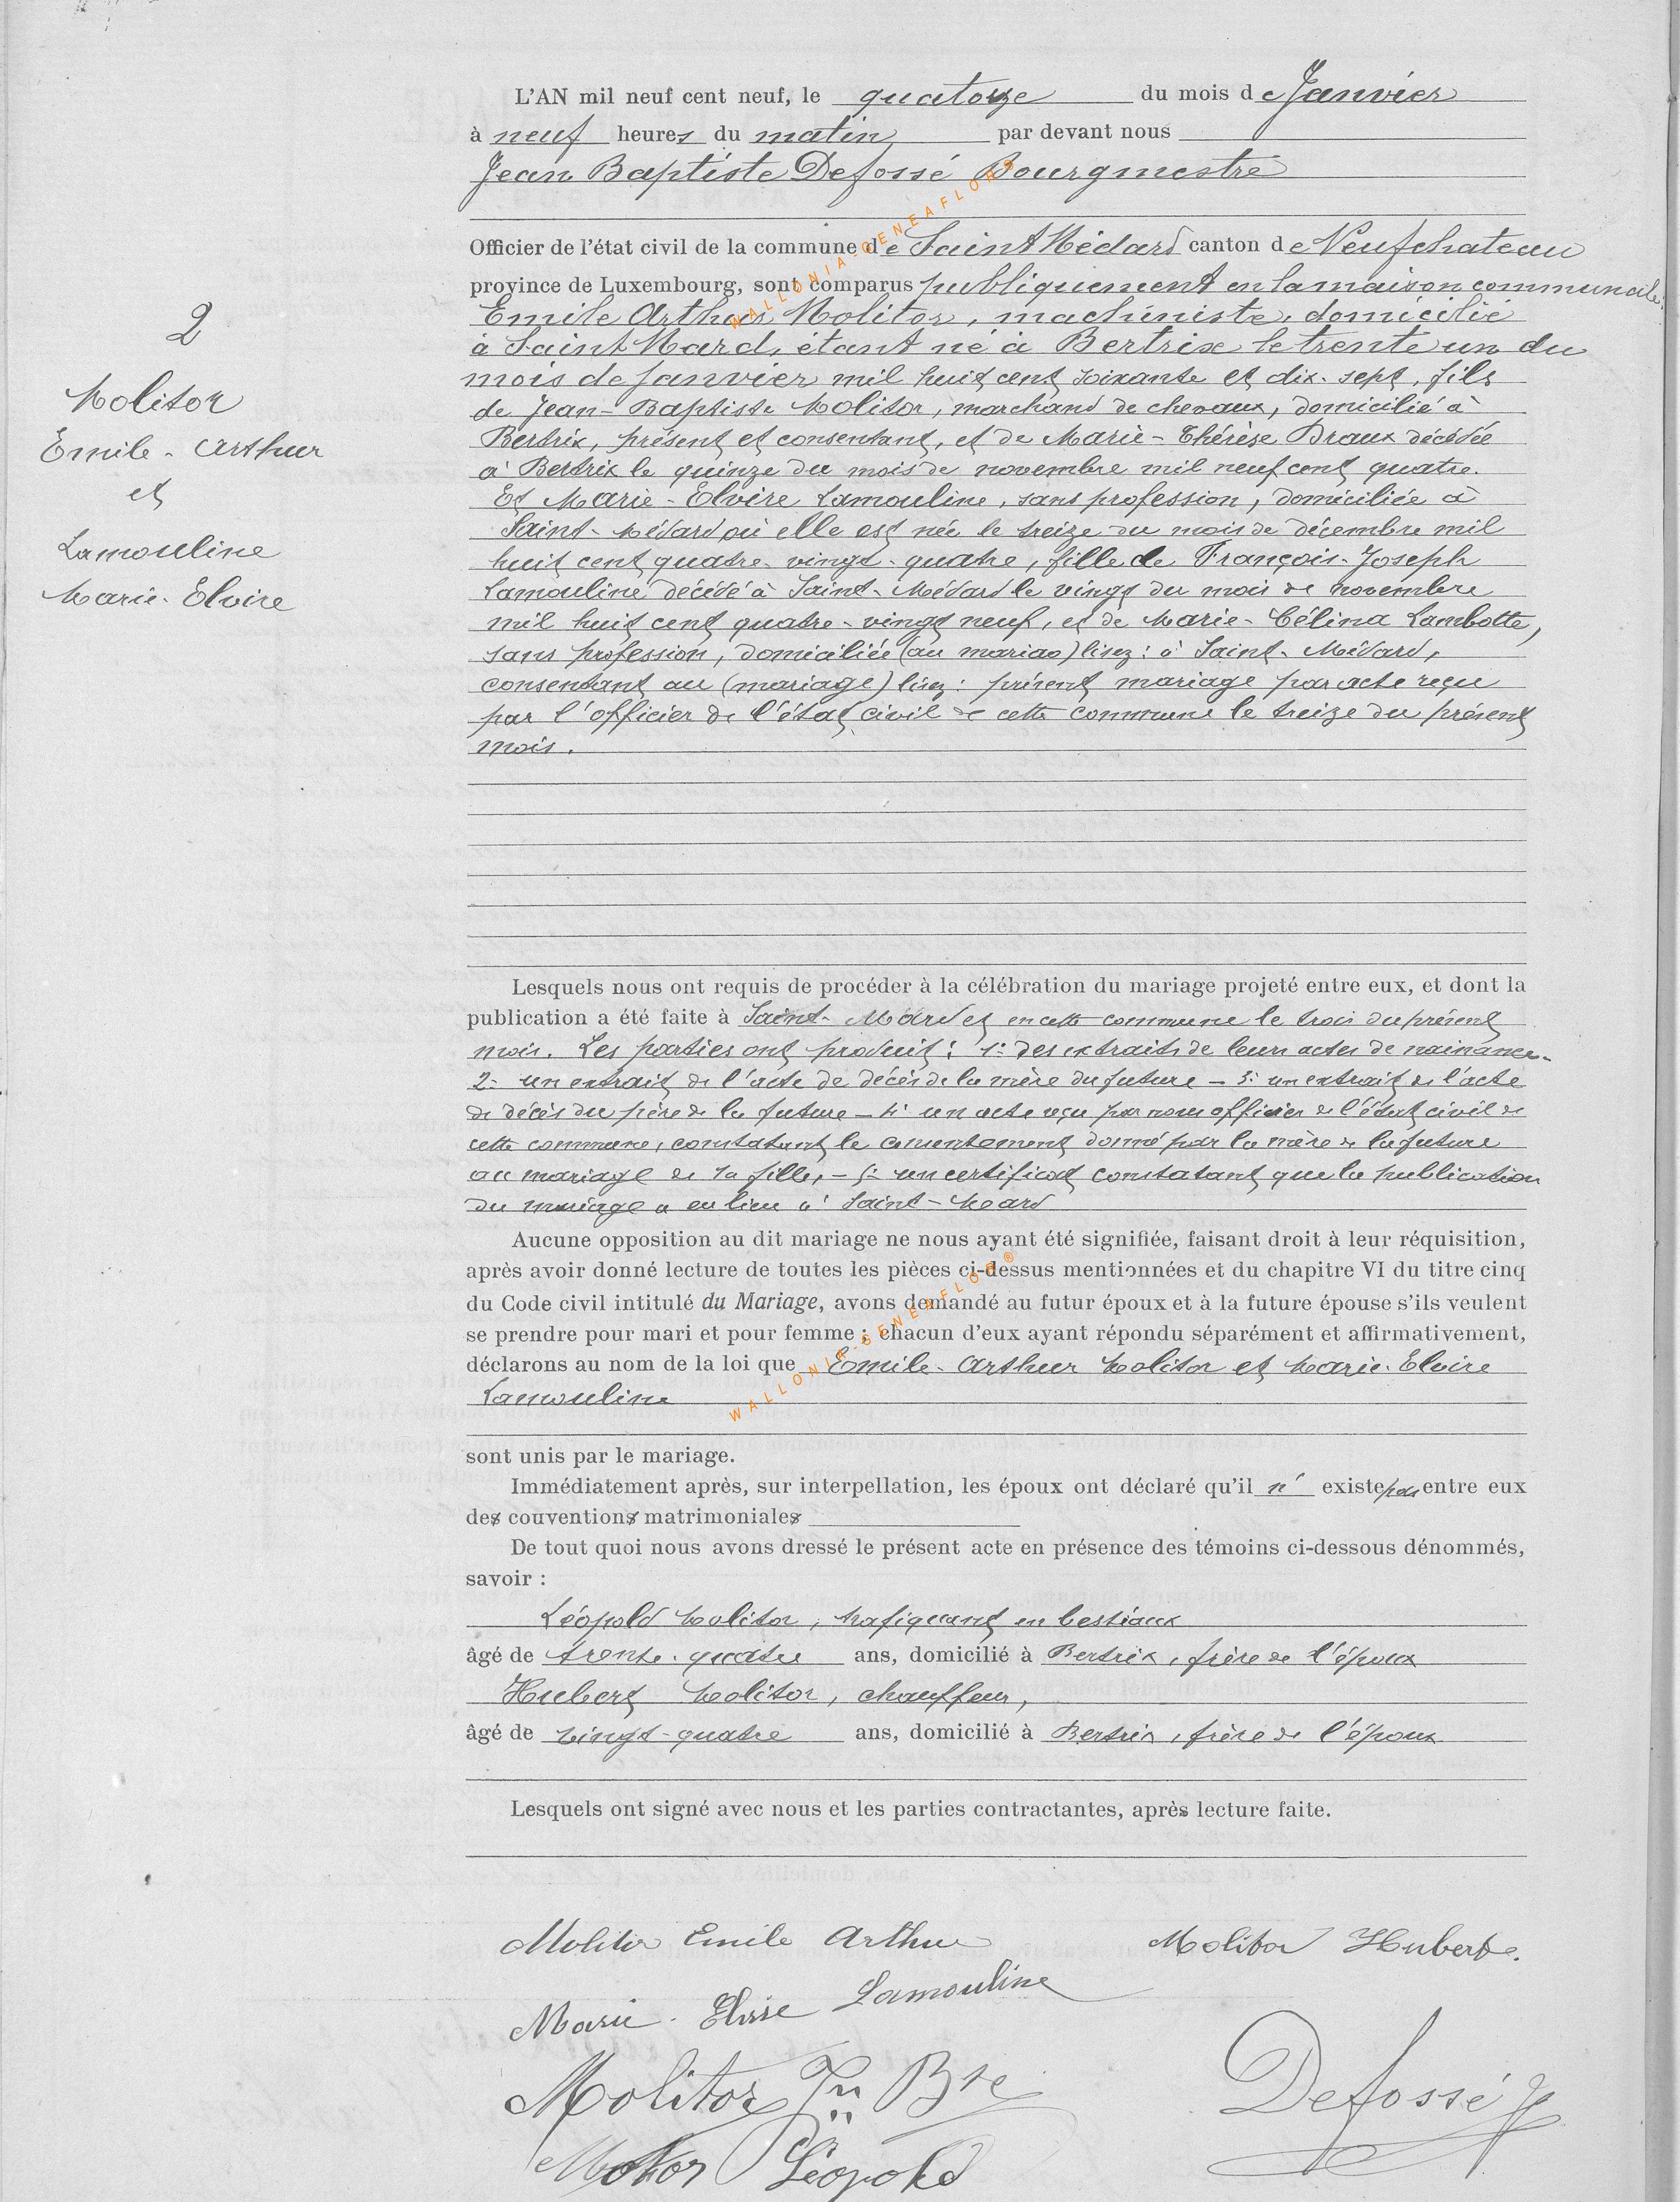 L'AN mil neuf cent neuf, le quatorze du mois de Janvier
à neuf heures du matin par devant nous
Jean Baptiste Defossé Bourgmestre
Officier de l'état civil de la commune de Saint Médard canton de Neufchateau
province de Luxembourg, sont comparus publiquement en la maison communale:
Emile Arthur Molitor, machiniste, domicilié
à Saint Mard, étant né à Bertrix le trente un du
mois de Janvier mil huit cent soixante et dix-sept, fils
de Jean-Baptiste Molitor, marchand de chevaux, domicilié à
Bertrix, présent et consentant, et de Marie-Thérèse Draux décédée
à Bertrix le quinze du mois de novembre mil neuf cent quatre.
Et Marie-Elvire Lamouline, sans profession, domiciliée à
Saint-Médard où elle est née le treize du mois de décembre mil
huit cent quatre-vingt-quatre, fille de François-Joseph
Lamouline décédé à Saint-Médard le vingt du mois de novembre
mil huit cent quatre-vingt neuf, et de Marie-Célina Lambotte,
sans profession, domiciliée (au mariao) lisez: à Saint-Médard,
consentant au (mariage) lisez: présent mariage par acte reçu
par l'officier de l'état civil de cette commune le treize du présent
mois.
2
Molitor
Emile-Arthur
et
Lamouline
Marie-Elvire
Lesquels nous ont requis de procéder à la célébration du mariage projeté entre eux, et dont la
publication a été faite à Saint-Mard et en cette commune le trois du présent
mois. Les parties ont produit: 1: des extraits de leurs actes de naissance-
2: un extrait de l'acte de décès de la mère du future - 3: un extrait de l'acte
de décès du père de la future - 4: un acte reçu par nous officier de l'état civil de
cette commune, constatant le consentement donné par la mère de la future
au mariage de sa fille, - 5: un certificat constatant que la publication
du mariage a eu lieu à Saint-Mard
Aucune opposition au dit mariage ne nous ayant été signifiée, faisant droit à leur réquisition,
après avoir donné lecture de toutes les pièces ci-dessus mentionnées et du chapitre VI du titre cinq
du Code civil intitulé du Mariage, avons demandé au futur époux et à la future épouse s'ils veulent
se prendre pour mari et pour femme; chacun d'eux ayant répondu séparément et affirmativement,
déclarons au nom de la loi que Emile-Arthur Molitor et Marie-Elvire
Lamouline
sont unis par le mariage.
Immédiatement après, sur interpellation, les époux ont déclaré qu'il n' existe pas entre eux
des conventions matrimoniales
De tout quoi nous avons dressé le présent acte en présence des témoins ci-dessous dénommés,
savoir :
Léopold Molitor, trafiquant en bestiaux
âgé de trente-quatre ans, domicilié à Bertrix, frère de l'époux
Hubert Molitor, chauffeur,
âgé de vingt-quatre ans, domicilié à Bertrix, frère de l'époux
Lesquels ont signé avec nous et les parties contractantes, après lecture faite.
Molitor Emile Arthur Molitor Hubert.
Marie-Elvire Lamouline
Molitor Jn Bte Defossé J
Molitor Léopold
WALLONIA-GENEAFLOR®
WALLONIA-GENEAFLOR®